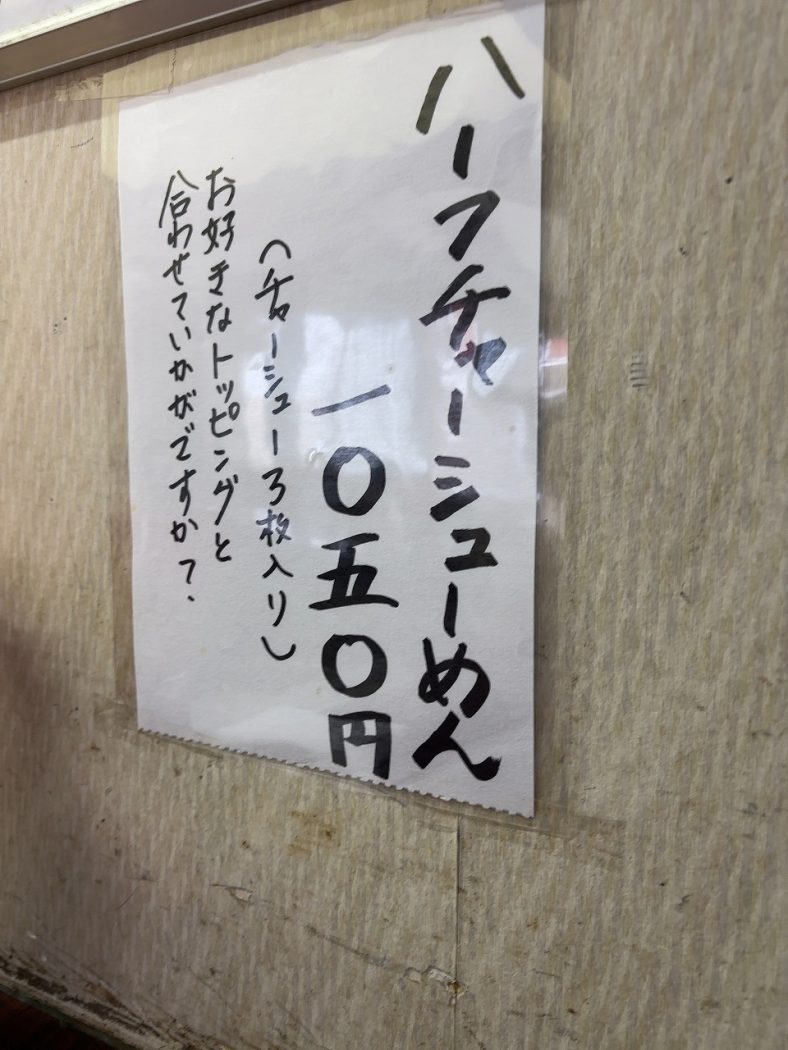 ハーフチャーシューめん
一〇五〇円
(チャーシュー3枚入り)
お好きなトッピングと
合わせていかがですか?